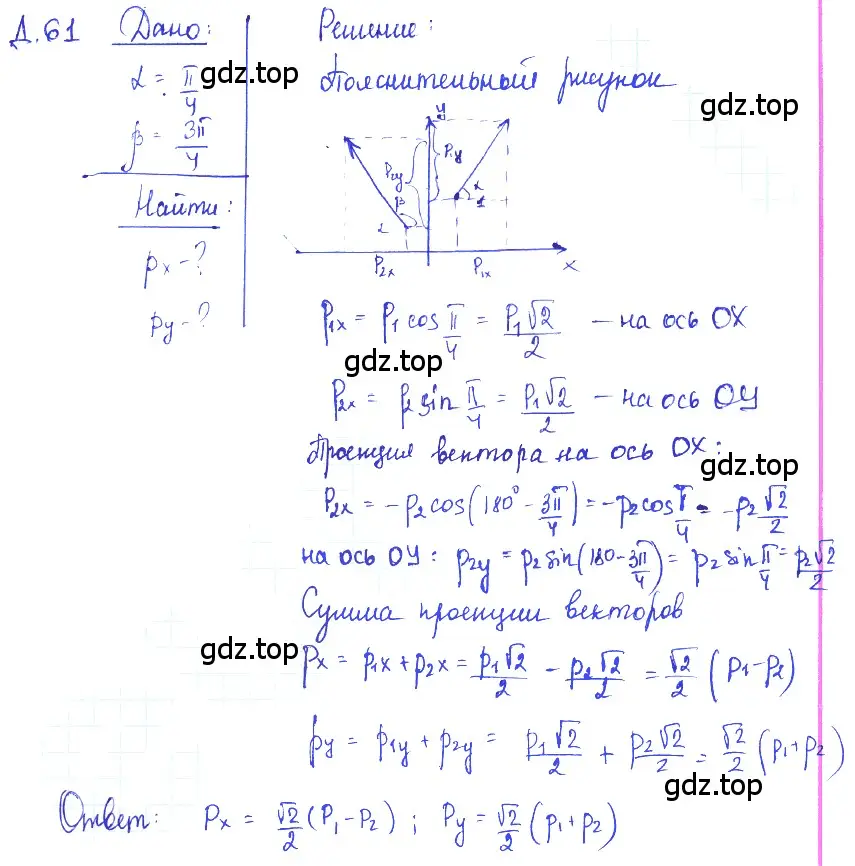 Д.61 Дано:
α = π/4
β = 3π/4
Найти:
px - ?
py - ?
Решение:
Пояснительный рисунок
gdz.top
gdz.top
y
P2y
P1y
β
α
2
1
P2x
P1x
x
P1x = P1 cos π/4 = P1√2/2 — на ось OX
gdz.top
P2x = p2 sin π/4 = P1√2/2 — на ось OY
Проекция вектора на ось OX:
gdz.top
P2x = -p2 cos(180° - 3π/4) = -p2 cos π/4 = -p2 √2/2
на ось OY: p2y = p2 sin(180 - 3π/4) = p2 sin π/4 = p2√2/2
Сумма проекции векторов
gdz.top
px = p1x + p2x = p1√2/2 - p2√2/2 = √2/2 (p1 - p2)
py = p1y + p2y = p1√2/2 + p2√2/2 = √2/2 (p1 + p2)
gdz.top
Ответ: Px = √2/2 (P1 - P2); Py = √2/2 (p1 + p2)